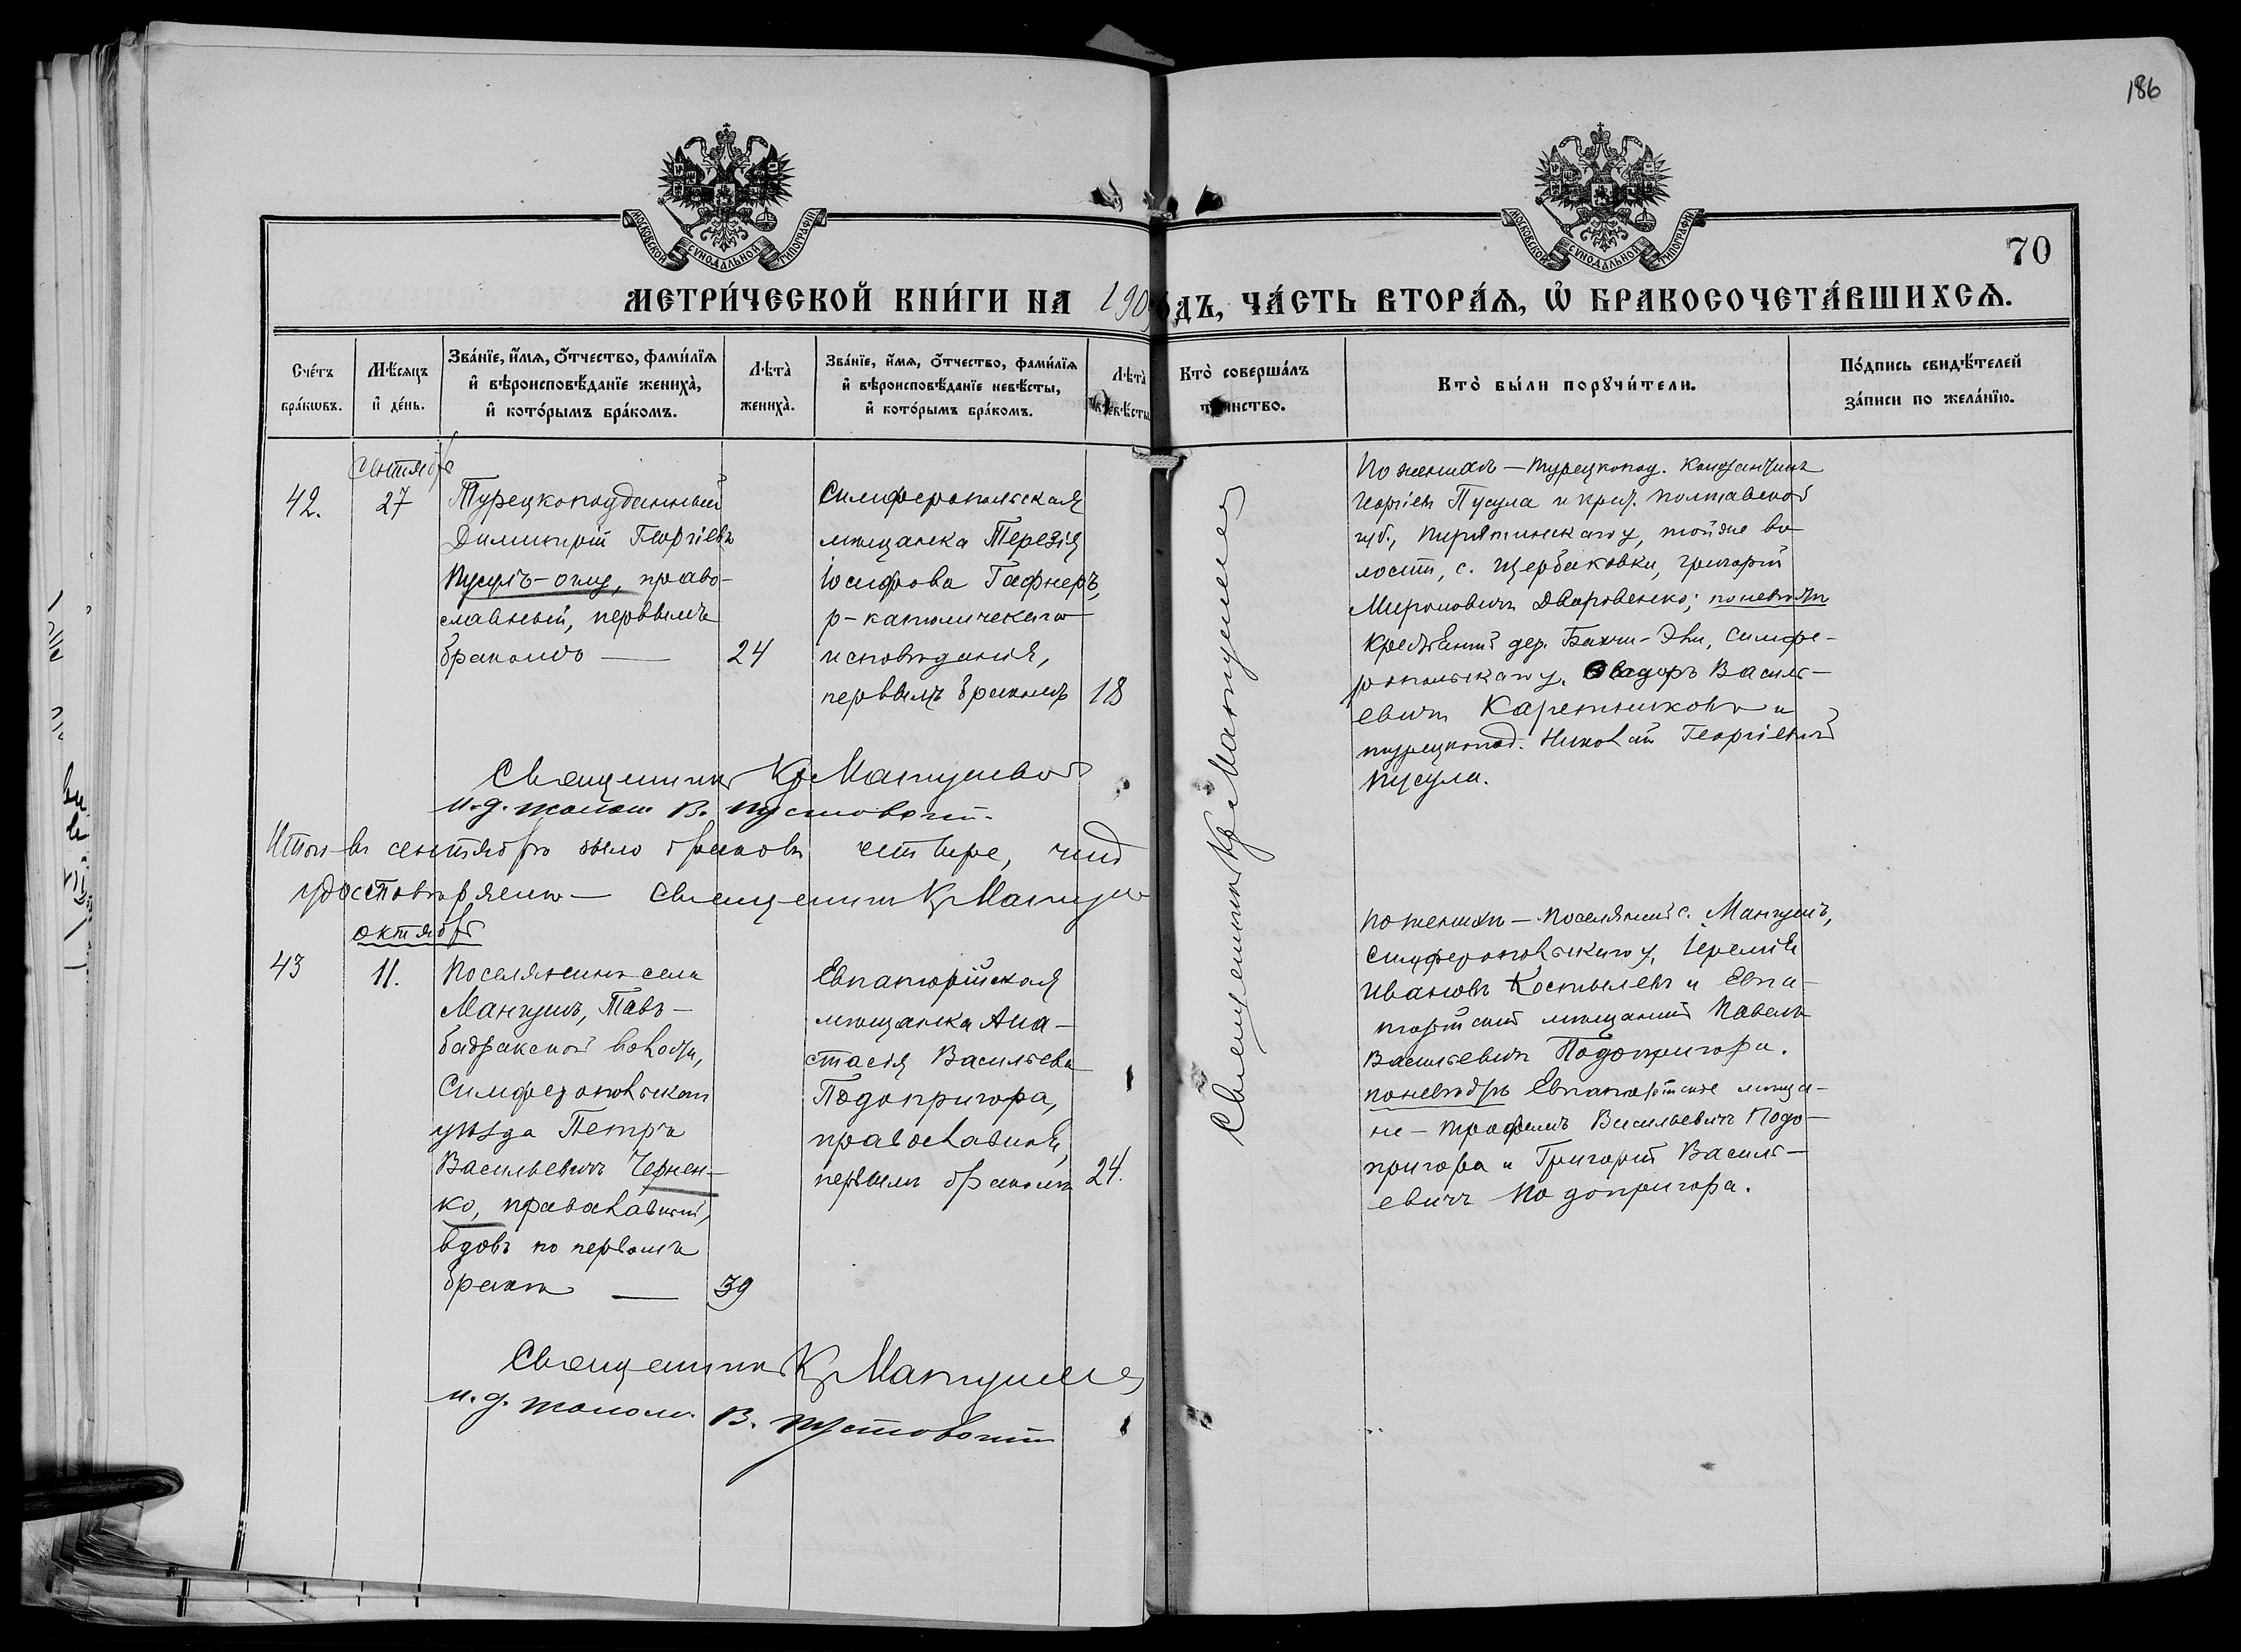 186
МОСКОВСКОЙ СѴНОДАЛЬНОЙ ТИПОГРАФІИ
МОСКОВСКОЙ СѴНОДАЛЬНОЙ ТИПОГРАФІИ
70
МЕТРИ́ЧЕСКОЙ КНИ́ГИ НА 190 ОДЪ, ЧА́СТЬ ВТОРА́Ѧ, Ѽ БРАКОСОЧЕТА́ВШИХСѦ.
Сче́тъ бра́кѡвъ.
Мѣ́сяцъ и҆ де́нь.
Зва́нїе, и҆́мѧ, ѻ҆́тчество, фами́лїѧ и҆ вѣроисповѣ́данїе женихà, и҆ кото́рымъ бра́комъ.
Лѣ́та̀ женихà.
Зва́нїе, и҆́мѧ, ѻ҆́тчество, фами́лїѧ и҆ вѣроисповѣ́данїе невѣ́сты, и҆ кото́рымъ бра́комъ.
Лѣ́та̀ невѣ́сты
Кто̀ соверша́лъ таинство.
Кто̀ бы́ли порꙋчи́тели.
По́дпись свидѣ́телей за́писи по жела́нїю.
Сентябрь
42.
27
Турецкоподданный
Димитрій Георгіевъ
Пусулъ-оглу, право-
славный, первымъ
бракомъ —
24
Симферопольская
мѣщанка Терезія
Іосифова Гафнеръ,
р-католическаго
исповѣданія,
первымъ бракомъ
18
Священникъ Кр Матушев
По женихѣ — турецкопод. Константинъ
Георгіевъ Пусула и крест. Полтавской
губ., Пирятинскаго у, тойже во-
лости, с. Щербаковки, Григорій
Мироновичъ Дваровенко; по невѣстѣ
крестьянинъ дер. Бахчи-Эли, Симфе-
ропольскаго у. Ѳеодоръ Василь-
евичъ Каретниковъ и
турецкопод. Николай Георгіевичъ
Пусула.
Священникъ Кр Матушев
и.д. псалом. В. Пустовойт
Итого въ сентябрѣ было браковъ четыре, что
удостовѣряемъ — Священникъ Кр Матуш
октябрь
43
11.
Поселянинъ села
Мангушъ, Тавъ-
бадракской волости,
Симферопольскаго
уѣзда Петръ
Васильевичъ Чернен-
ко, православный,
вдовъ по первомъ
бракѣ —
39
Евпаторійская
мѣщанка Ана-
стасія Васильева
Подопригора,
православная,
первымъ бракомъ
24.
По женихѣ — поселянинъ с. Мангушъ,
Симферопольскаго у, Іеремія
Ивановъ Костылевъ и Евпа-
торійскій мѣщанинъ Павелъ
Васильевичъ Подопригора.
по невѣстѣ Евпаторійские мѣща-
не — Трофимъ Васильевичъ Подо-
пригора и Григорій Василь-
евичъ Подопригора.
Священникъ Кр Матушев
и.д. псалом. В. Пустовойт